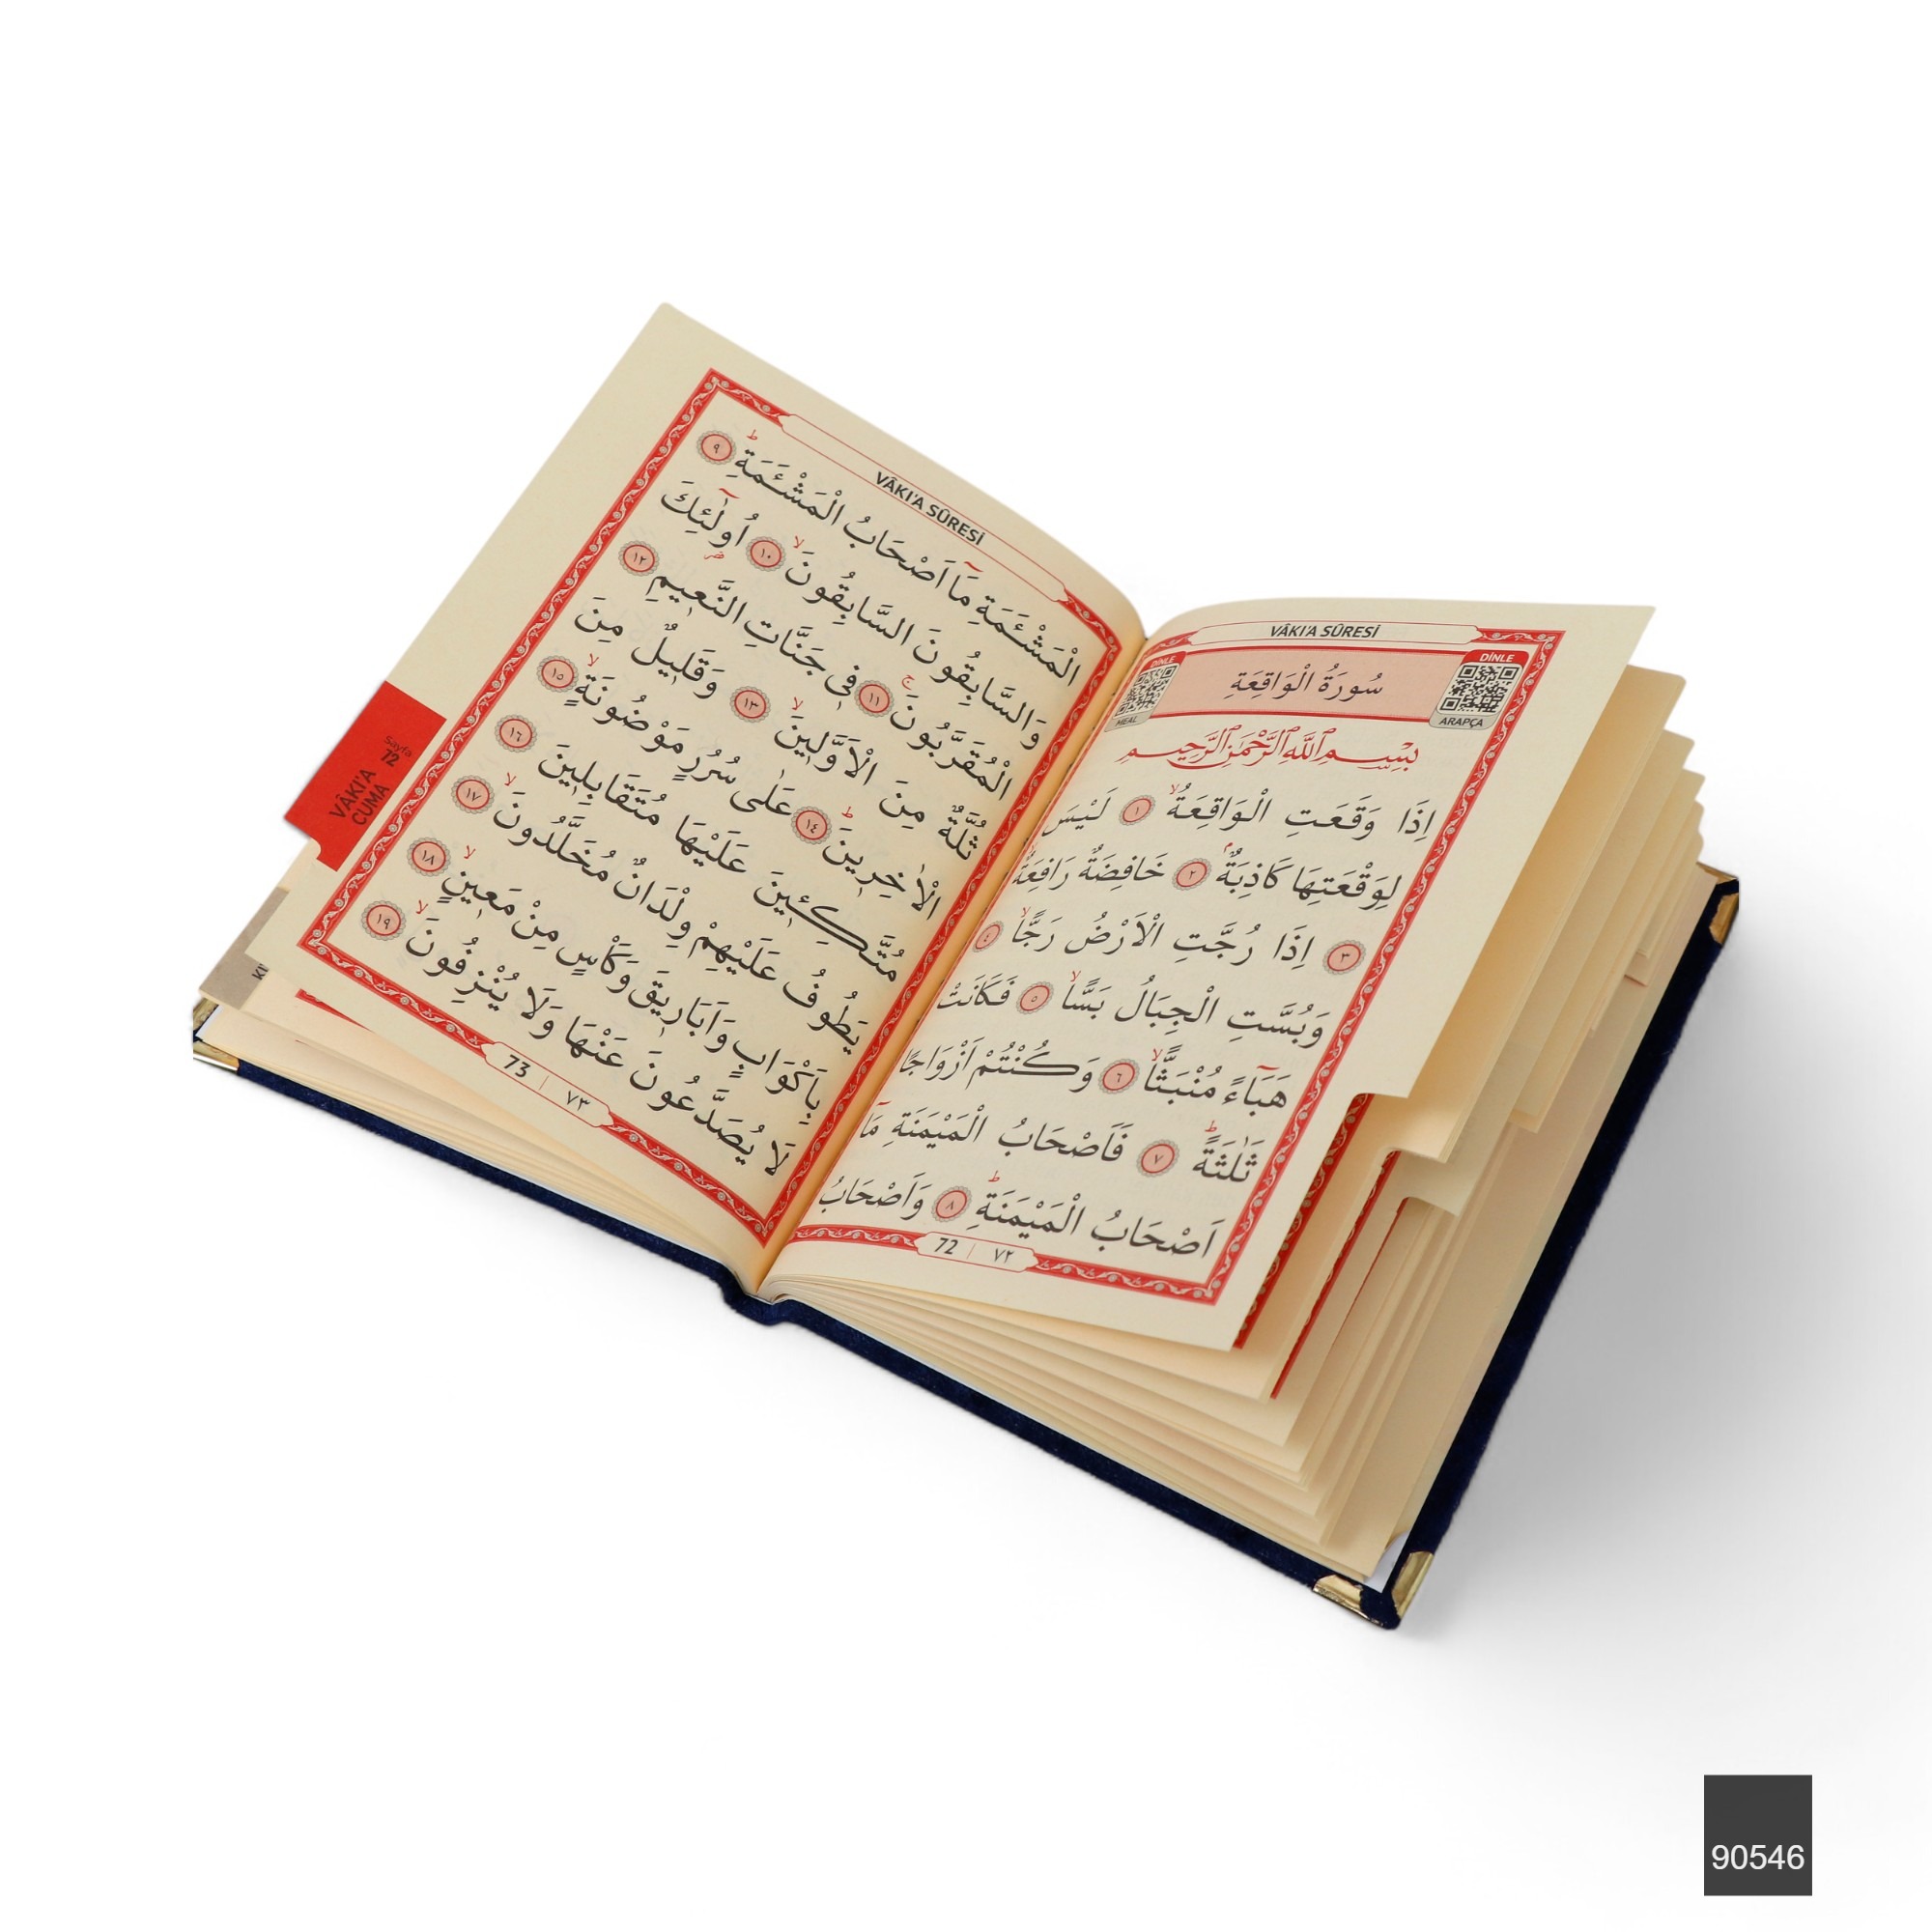 VÂKI'A SÛRESİ
DİNLE
MEAL
سُورَةُ الْوَاقِعَةِ
DİNLE
ARAPÇA
بِسْمِ اللّٰهِ الرَّحْمٰنِ الرَّحِيمِ
اِذَا وَقَعَتِ الْوَاقِعَةُۙ ﴿١﴾ لَيْسَ
لِوَقْعَتِهَا كَاذِبَةٌۢ ﴿٢﴾ خَافِضَةٌ رَافِعَةٌ
﴿٣﴾ اِذَا رُجَّتِ الْاَرْضُ رَجًّاۙ ﴿٤﴾
وَبُسَّتِ الْجِبَالُ بَسًّاۙ ﴿٥﴾ فَكَانَتْ
هَبَٓاءً مُنْبَثًّاۙ ﴿٦﴾ وَكُنْتُمْ اَزْوَاجًا
ثَلٰثَةًۜ ﴿٧﴾ فَاَصْحَابُ الْمَيْمَنَةِ مَٓا
اَصْحَابُ الْمَيْمَنَةِۜ ﴿٨﴾ وَاَصْحَابُ
72 | ٧٢
VÂKI'A SÛRESİ
الْمَشْـَٔمَةِ مَٓا اَصْحَابُ الْمَشْـَٔمَةِۜ ﴿٩﴾
وَالسَّابِقُونَ السَّابِقُونَۙ ﴿١٠﴾ اُولٰٓئِكَ
الْمُقَرَّبُونَۚ ﴿١١﴾ فِي جَنَّاتِ النَّعِيمِ ﴿١٢﴾
ثُلَّةٌ مِنَ الْاَوَّلِينَۙ ﴿١٣﴾ وَقَلِيلٌ مِنَ
الْاٰخِرِينَۜ ﴿١٤﴾ عَلٰى سُرُرٍ مَوْضُونَةٍۙ ﴿١٥﴾
مُتَّكِـِٔينَ عَلَيْهَا مُتَقَابِلِينَ ﴿١٦﴾
يَطُوفُ عَلَيْهِمْ وِلْدَانٌ مُخَلَّدُونَۙ ﴿١٧﴾
بِاَكْوَابٍ وَاَبَارِيقَ وَكَأْسٍ مِنْ مَعِينٍۙ ﴿١٨﴾
لَا يُصَدَّعُونَ عَنْهَا وَلَا يُنْزِفُونَۙ ﴿١٩﴾
73 | ٧٣
Sayfa
72
VÂKI'A
CUMA
90546